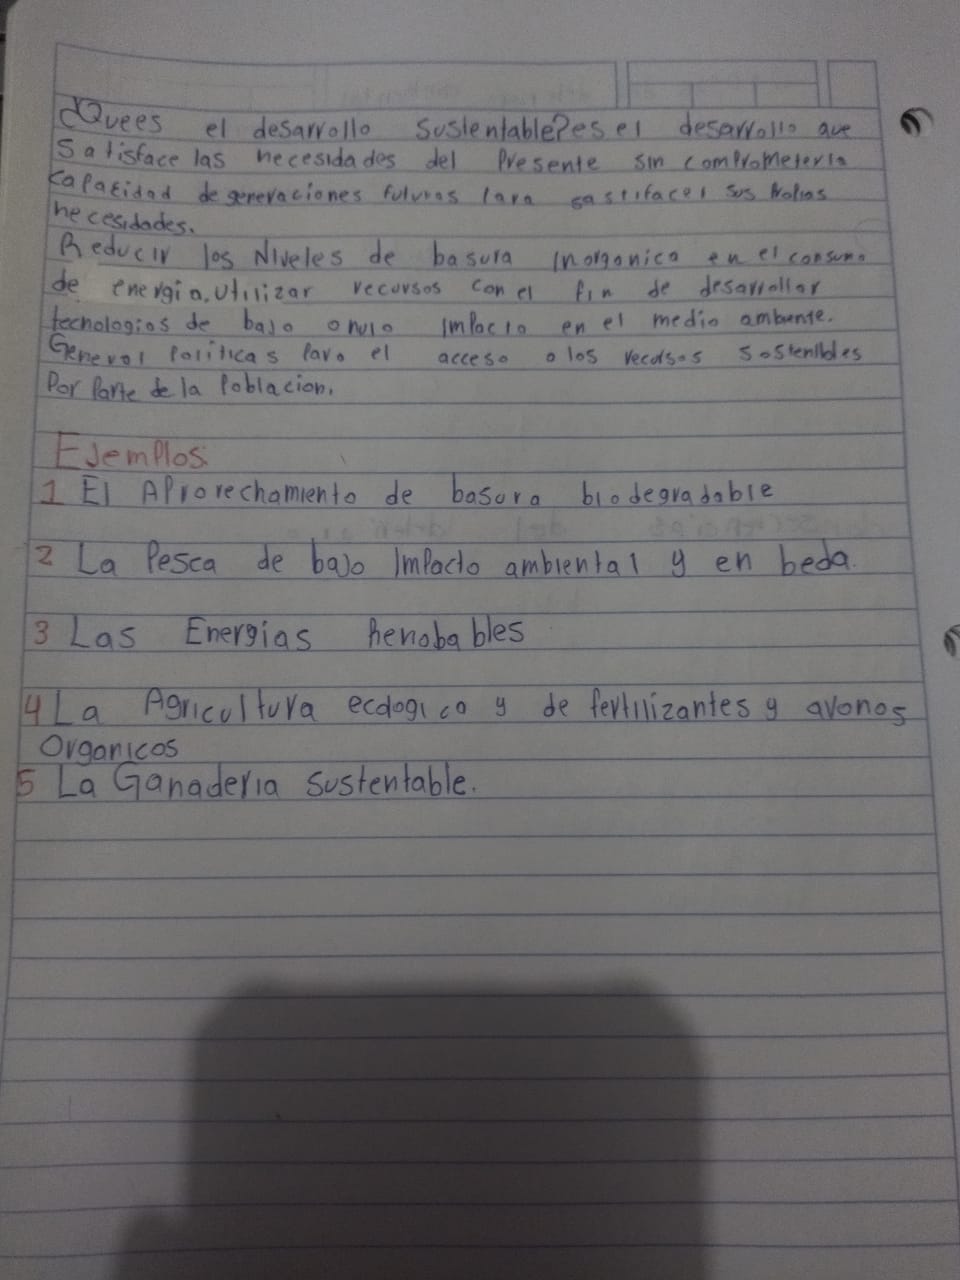 ¿Quees el desarrollo Sustentable?es el desarrollo que
Satisface las necesidades del Presente sin comprometerla
capacidad de generaciones futuras para sastifacer sus
necesidades.
Reducir los Niveles de basura Inorganica en el consumo
de energia.Utilizar recursos con el fin de desarrollar
tecnologias de bajo o nulo Impacto en el medio ambiente.
General Politicas Para el acceso a los recursos sostenibles
Por Parte de la Poblacion.
Ejemplos:
1 El Aprovechamiento de basura biodegradable
2 La Pesca de bajo Impacto ambiental y en beda.
3 Las Energias Renobables
4 La Agricultura ecologica y de fertilizantes y avonos
Organicos
5 La Ganaderia Sustentable.